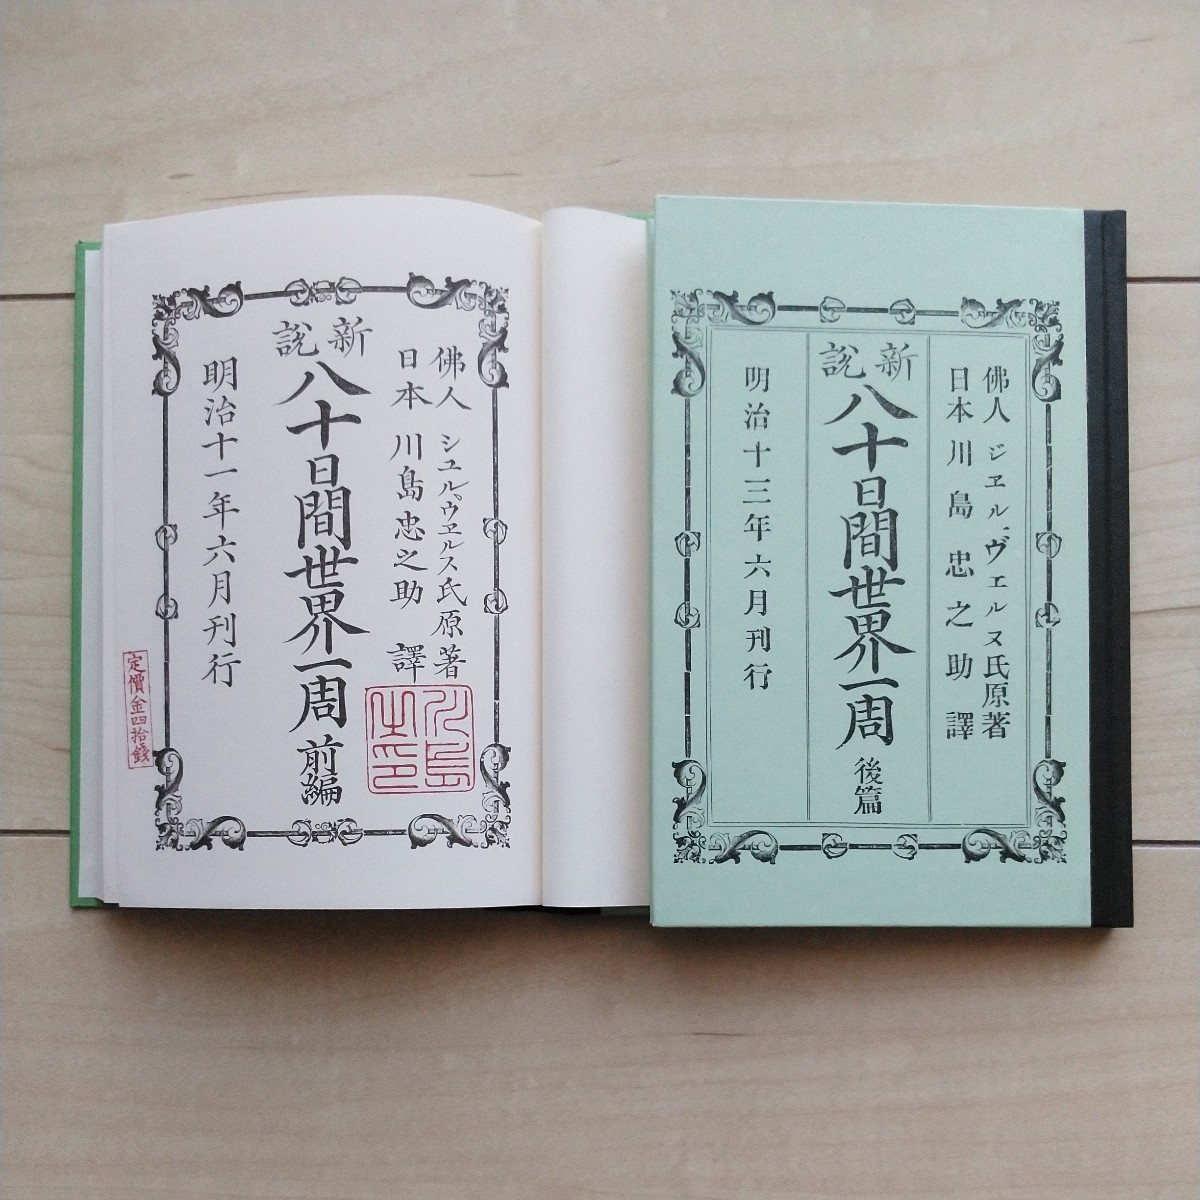 佛人 シユル、ウヱルス氏原著
日本 川島忠之助 譯
新説
八十日間世界一周 前編
明治十一年六月刊行
川島之印
定價金四拾錢
佛人 ジエル、ヴェルヌ氏原著
日本 川島忠之助 譯
新説
八十日間世界一周 後篇
明治十三年六月刊行